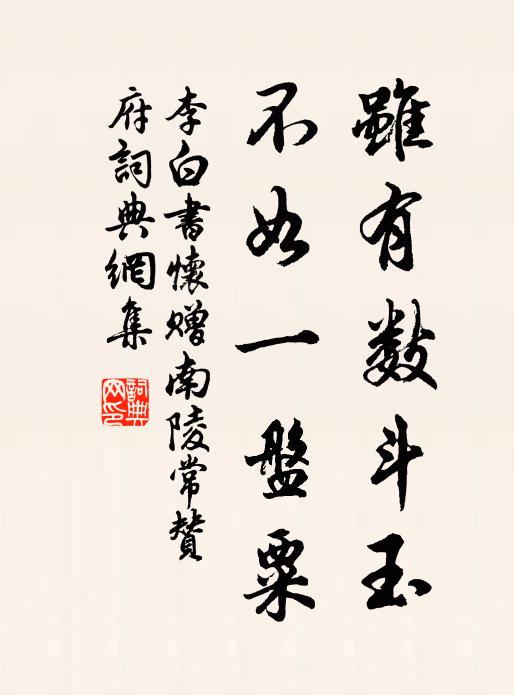 雖有数斗玉
不如一盤粟
李白書懷赠南陵常赞
府詞典網集
詞典网印